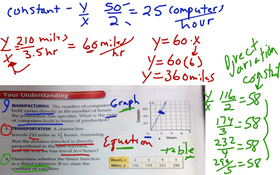 constant - y/x 50/2 = 25 computers/hour
y/x = 210 miles/3.5 hr = 60 mile/hr
y = 60·x
y = 60(6)
y = 360 miles
Direct variation
constant
x 116/2 = 58
174/3 = 58
232/4 = 58
290/5 = 58
Graph
Equation
table
Your Understanding
MANUFACTURING The number of computers
built varies directly as the number of hours
the production line operates. What is the ratio
of computers built to hours of production?
TRANSPORTATION A charter bus
travels 210 miles in 3½ hours. Assuming
that the distance traveled is directly
proportional to the time traveled, how
far will the bus travel in 6 hours?
Determine whether the linear function
is a direct variation. If so, state the
constant of variation.
Hours, x 2 3 4 5
Miles, y 116 174 232 290